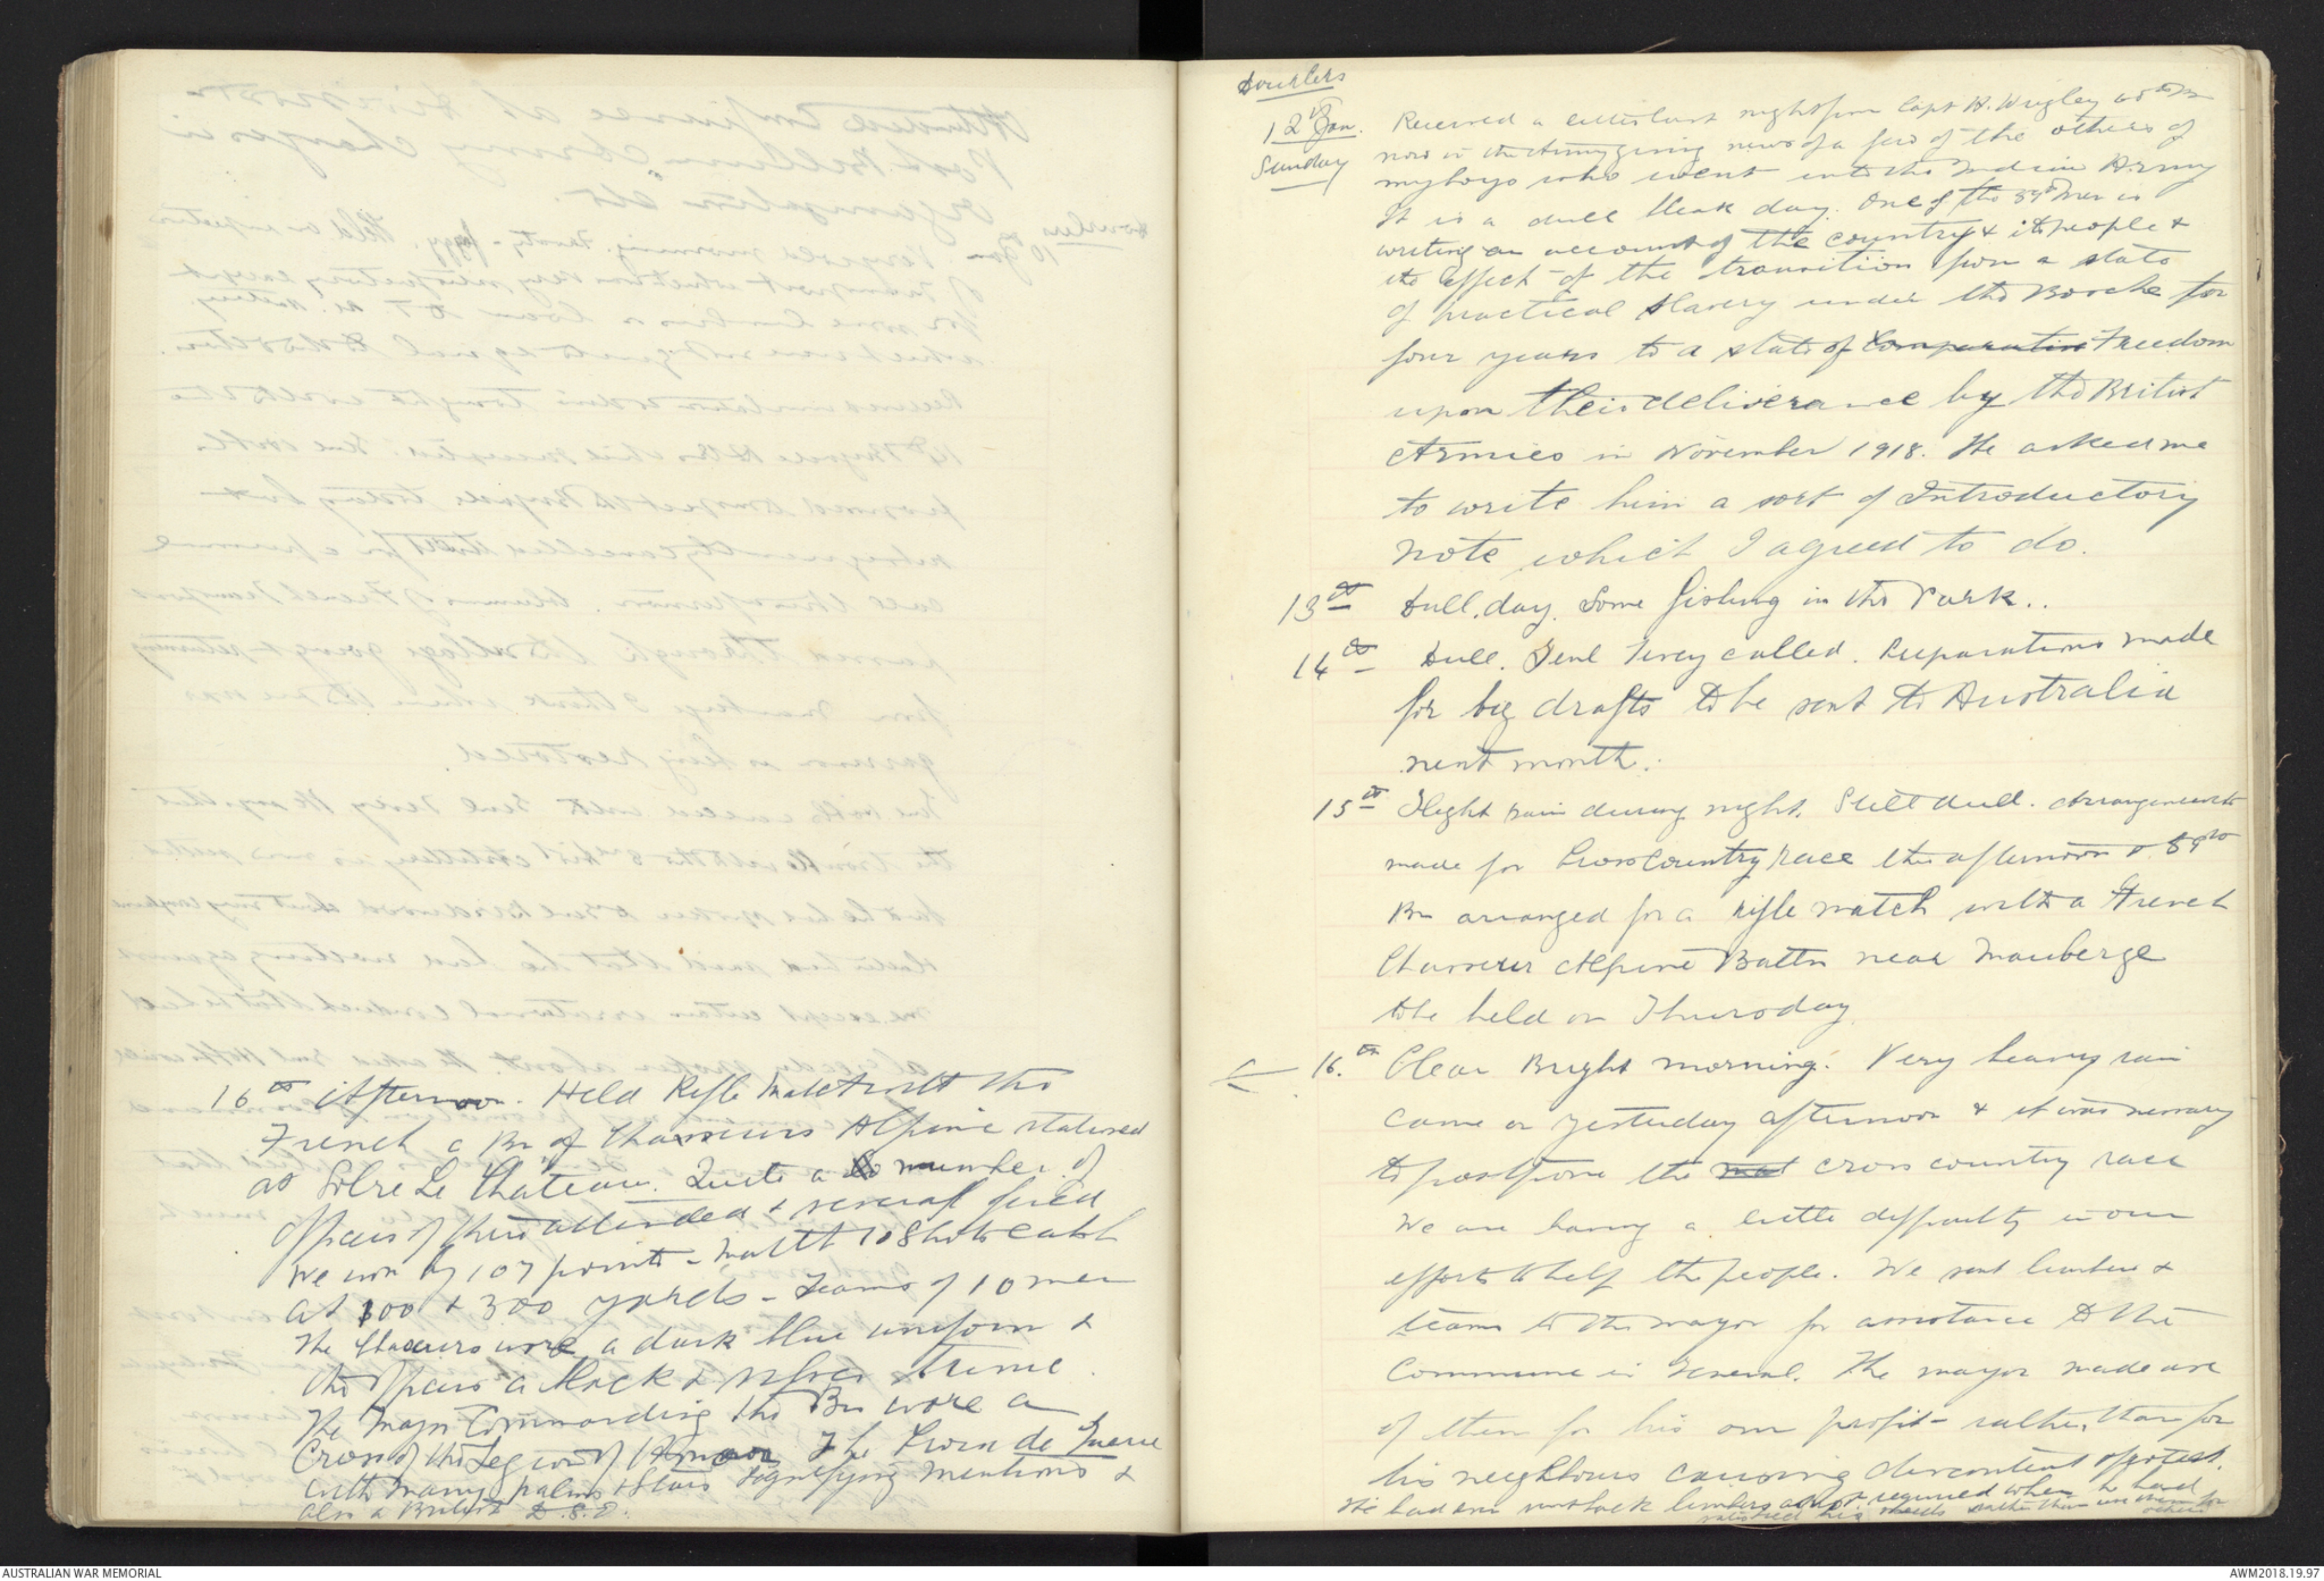 16th Afternoon. Held Rifle Match with the
French a Bn of Chasseurs Alpine stationed
at Solre Le Chateau. Quite a number of
officers of theirs attended & several fired
We won by 107 points - Match 10 Shots each
at 100 & 300 yards - Teams of 10 men
The Chasseurs wore a dark blue uniform &
the officers a black & silver
The Major Commanding the Bn wore a
Cross of the Legion of Honour The Croix de Guerre
with many palms & Stars signifying mentions &
also a British D.S.O.
Dourlers
12th Jan. Received a letter last night from Capt H. Wrigley
Sunday now in the Army giving news of a few of the others of
my boys who went into the Indian Army
It is a dull bleak day. One of the 59th men is
writing an account of the country & its people &
the effect of the transition from a state
of practical slavery under the Boche for
four years to a state of comparative Freedom
upon their deliverance by the British
Armies in November 1918. He asked me
to write him a sort of Introductory
note which I agreed to do.
13th Dull day. Some fishing in the Park..
14th Dull. Genl Tivey called. Preparations made
for big drafts to be sent to Australia
next month.
15th Slight rain during night. Still dull. Arrangements
made for Cross Country race this afternoon & 59th
Bn arranged for a rifle match with a French
Chasseur Alpine Battn near Mauberge
to be held on Thursday
16.th Clear Bright morning. Very heavy rain
came on yesterday afternoon & it was necessary
to postpone the cross country race
We are having a little difficulty in our
efforts to help the people. We sent limbers &
teams to the mayor for assistance to the
Commune in General. The mayor made use
of them for his own profit - rather than for
his neighbours causing discontent & protest.
He had sent back limbers as not required when he had
satisfied his needs rather than use them for
others